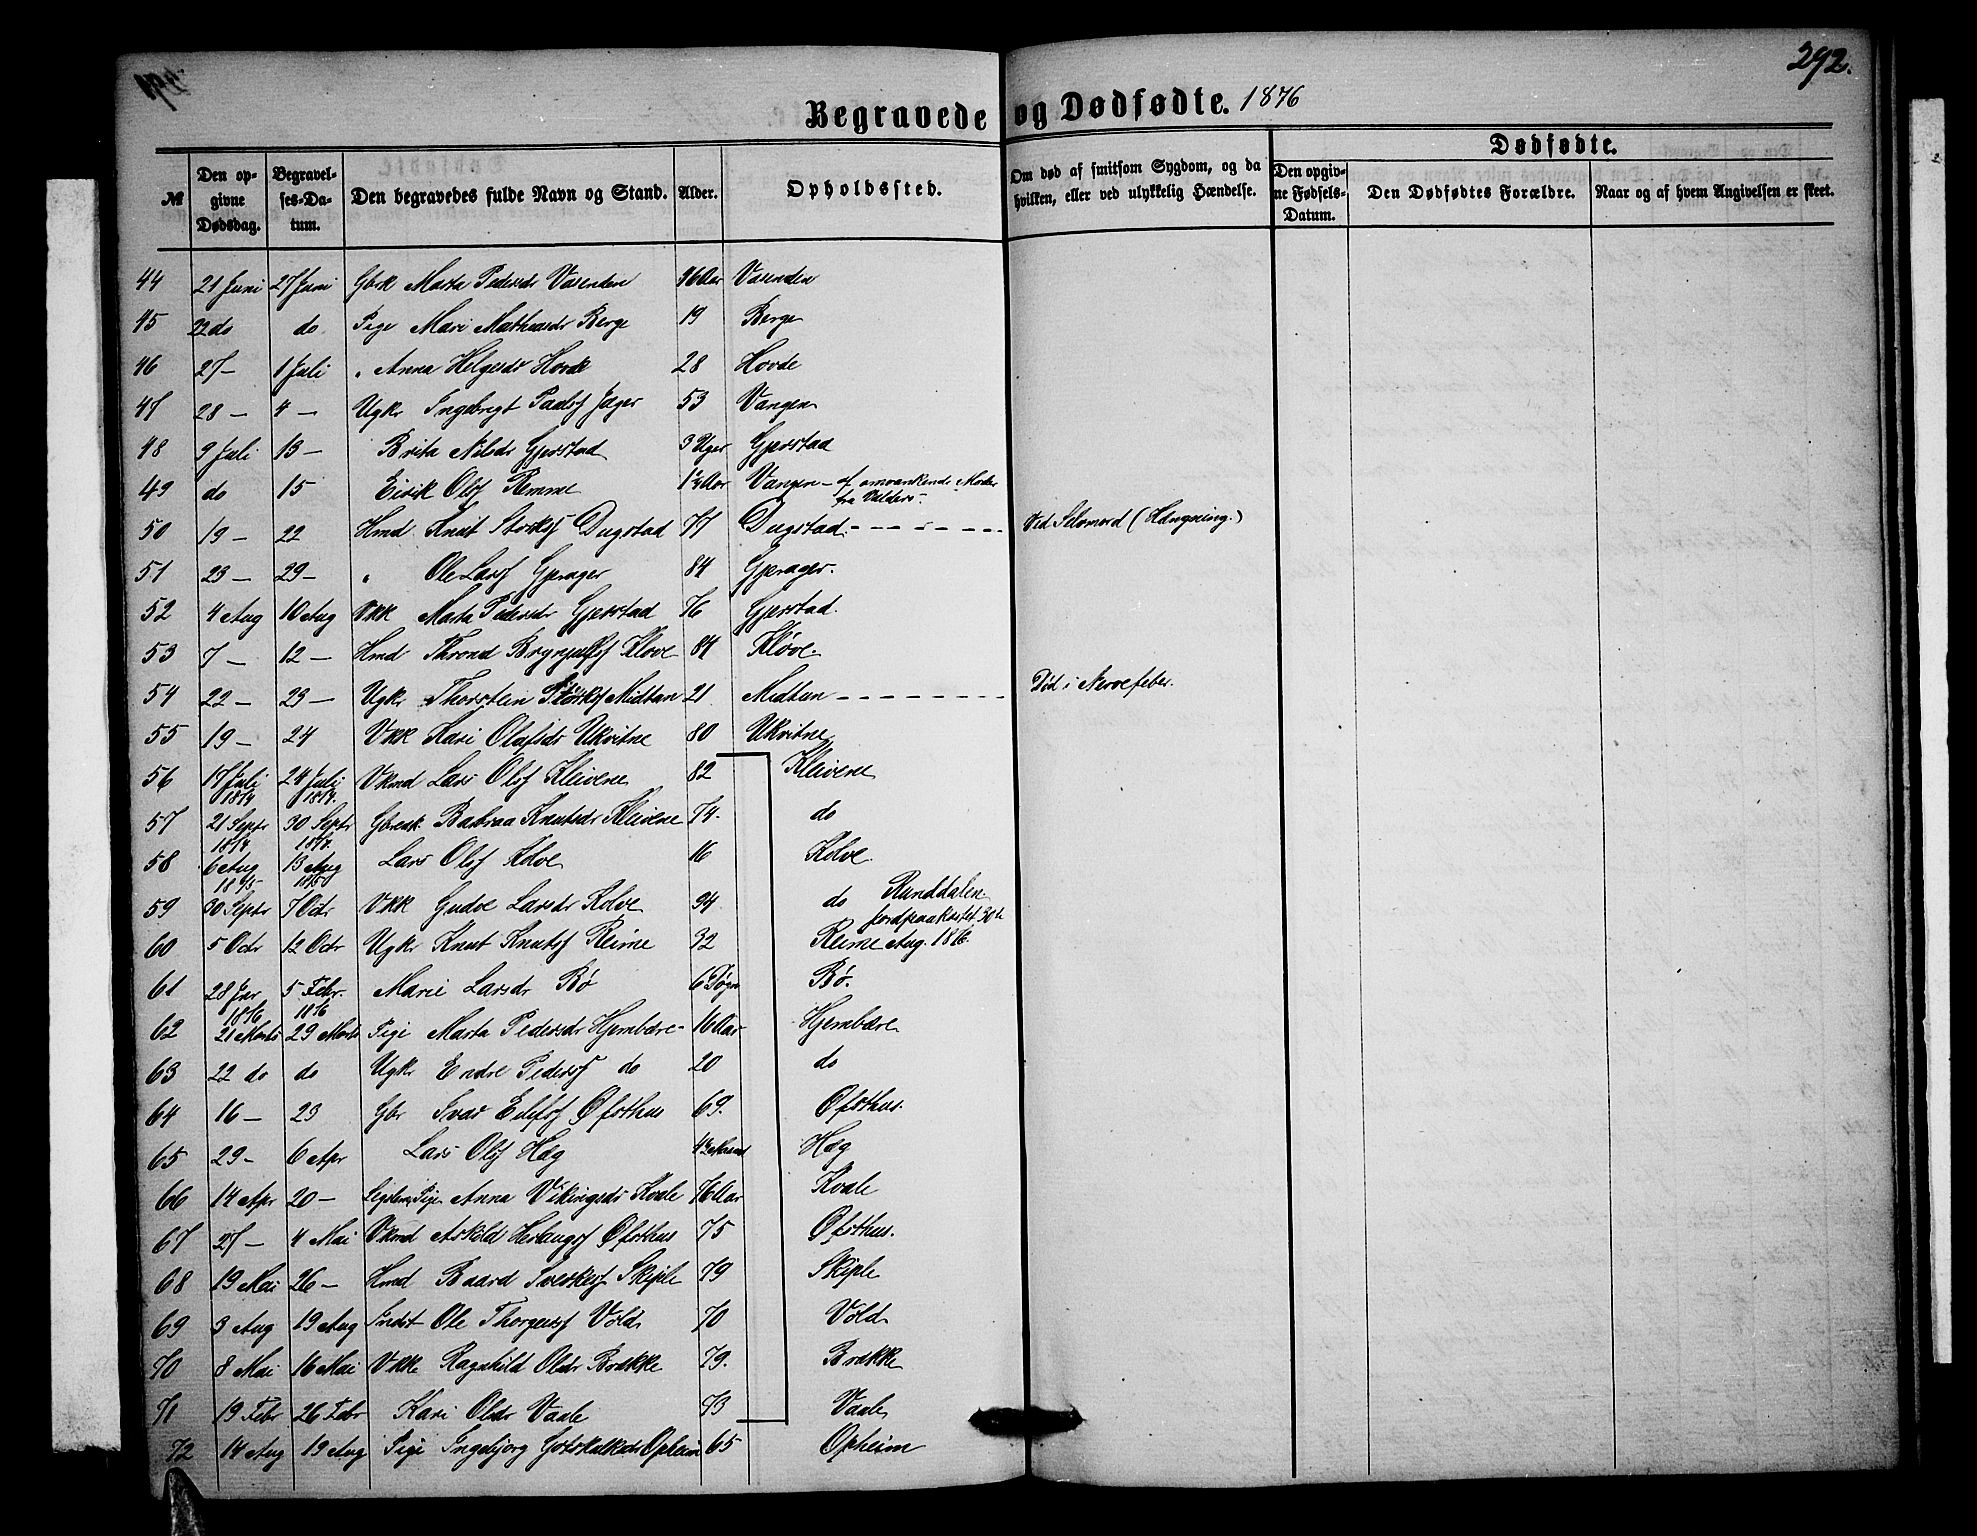 292.
Begravede og Dødfødte. 1876
Dødfødte.
№ Den opgivne Dødsdag. Begravelses-Datum. Den begravedes fulde Navn og Stand. Alder. Opholdssted. Om død af smitsom Sygdom, og da hvilken, eller ved ulykkelig Hændelse. Den opgivne Fødsels-Datum. Den Dødfødtes Forældre. Naar og af hvem Angivelsen er skeet.
44 21 Juni 27 Juni Gbrk Marta Pedersdr Vasenden 36 Aar Vasenden
45 22 do do Pige Mari Mathiasdr Berge 19 Berge
46 27 – 1 Juli " Anna Helgesdr Hovde 28 Hovde
47 28 – 4 – Ugkr Ingebrigt Paalsf Jæger 53 Vangen
48 9 Juli 13 – Brita Nilsdr Gjerstad 3 Uger Gjerstad
49 do 15 Eirik Olsf Remme 1½ Aar Vangen – af omvankende Moder
fra Valders –
50 19 – 22 Hmd Knut Styrksf Dugstad 77 Dugstad. – – – – – – Ved Selvmord (Hængning.)
51 23 – 29 – " Ole Larsf Gjerager 84 Gjerager.
52 4 Aug 10 Aug Vkk Marta Pedersdr Gjerstad 76 Gjerstad.
53 7 – 12 – Hmd Thrond Brynjulfsf Kløve 84 Kløve.
54 22 – 23 – Ugkr Thorstein Størksf Midtun 21 Midtun – – – – – – Død i Nervefeber.
55 19 – 24 Vkk Kari Olafsdr Ukvitne 80 Ukvitne
56 17 Juli 24 Juli Vkmd Lars Olsf Kleivene 82 Kleivene
1874 1874.
57 21 Septr 30 Septr Gbrcdk Babraa Knutsdr Kleivene 74. do
1874 1874.
58 6 Aug 13 Aug Lars Olsf Kolve 16 Kolve.
1875 1875
59 30 Septr 7 Octr Vkk Gudve Larsdr Kolve 94 do Runddalen
jordpaakastet 30te
60 5 Octr 12 Octr Ugkr Knut Knutsf Reime 32 Reime Aug. 1876.
61 28 Jnr 5 Febr. Marie Larsdr Bø 6 Døgn Bø.
1876 1876
62 21 Marts 29 Marts Pige Marta Pedersdr Hjembære – 16 Aar Hjembære
63 22 do do Ugkr Endre Pedersf do 20 do
64 16 – 23 Gbr Ivar Eilifsf Øfsthus 69. Øfsthus.
65 29 – 6 Apr Lars Olsf Hæg Hæg
66 14 Apr 20 – Legdem. Pige Anna Vikingsdr Kvale 76 Aar Kvale
67 27 – 4 Mai Vkmd Arkild Herlaugsf Øfsthus 75 Øfsthus.
68 19 Mai 26 – Hmd Baard Sverkesf Skiple 79 Skiple
69 3 Aug 19 Aug Indst Ole Thorgersf Vold 70 Vold
70 8 Mai 16 Mai Vkke Ragnhild Olsdr Brække 79. Brække
71 19 Febr 26 Febr Kari Olsdr Vaale 73 Vaale
72 14 Aug 19 Aug Pige Ingebjørg Gotskalksdr Opheim 65 Opheim